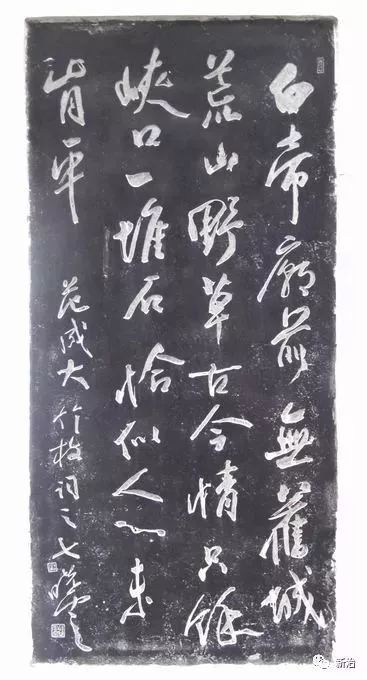 白帝廟前無舊城
荒山野草古今情只餘
峽口一堆石恰似人心未
肯平
范成大竹枝詞之七
新冶